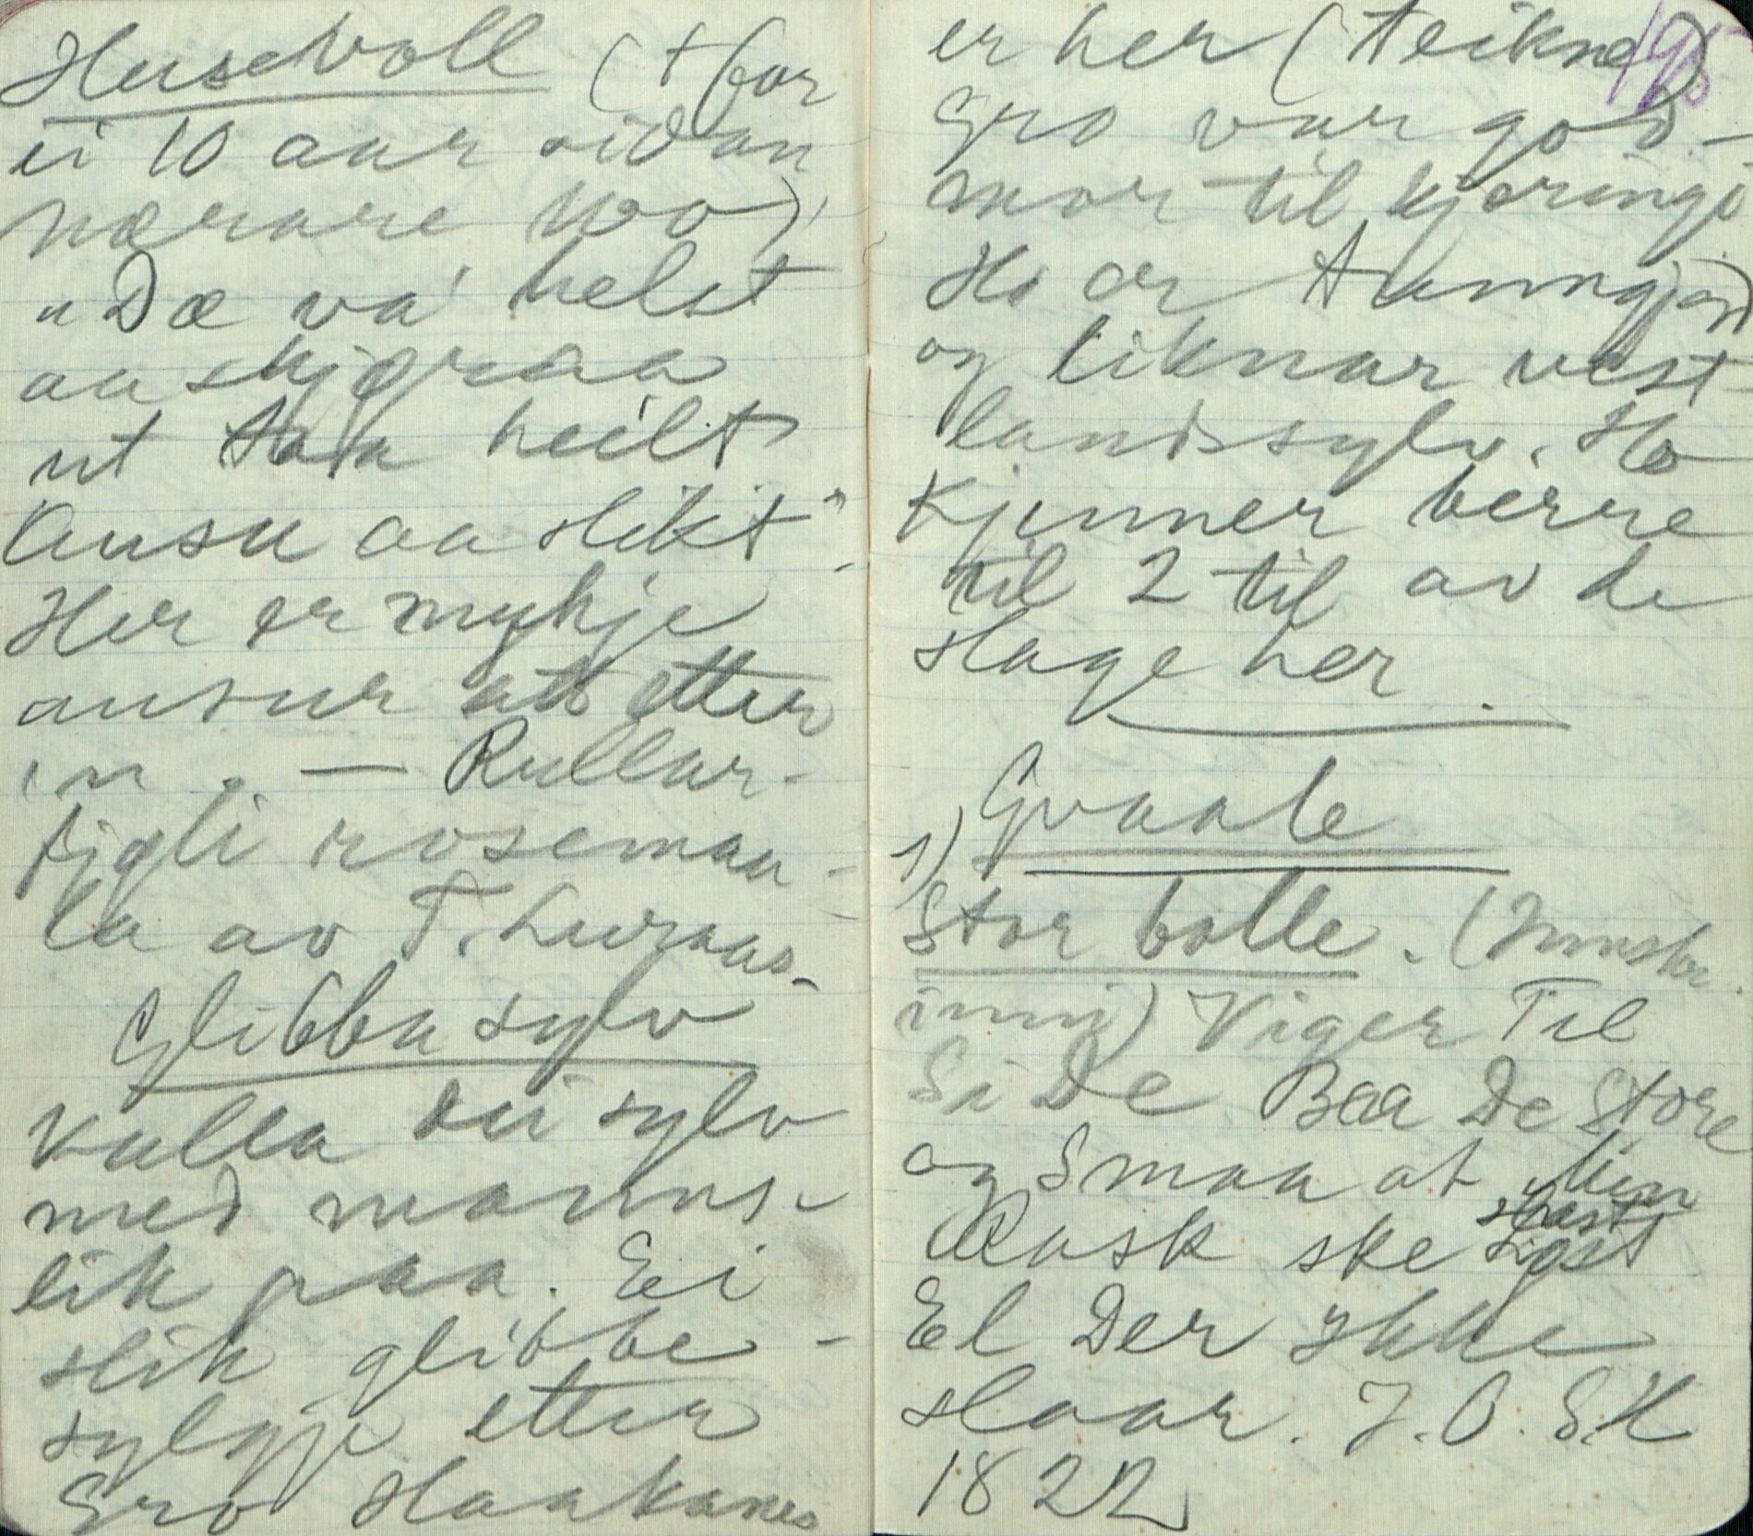 Husevoll († for
ei 10 aar sidan
nærare 100)
"Dæ va' helst
aa skjøraa
ut taa heilt
Ausu aa slikt"
Her er mykje
ausur att etter
'n. — Rullar-
fjøli rosemaa-
la av T. Luraas-
Glibbasylv
kalla dei sylv
med manns-
lik paa. Ei
slik glibbe-
sylgje etter
Gro Haakanes
er her (teikne)
195
Gro var god-
mor til kjæringi
Ho er tunngjord
og liknar vest-
landssylv. Ho
kjenner berre
til 2 til av de
slage her.
Gvaale
1)
Stor bolle. (Innskr.
inni) Viger Til
Side Baa De Store
og Smaa at Min
Rask ske
El Der Ikke
slaar. J. O. S. H
1822